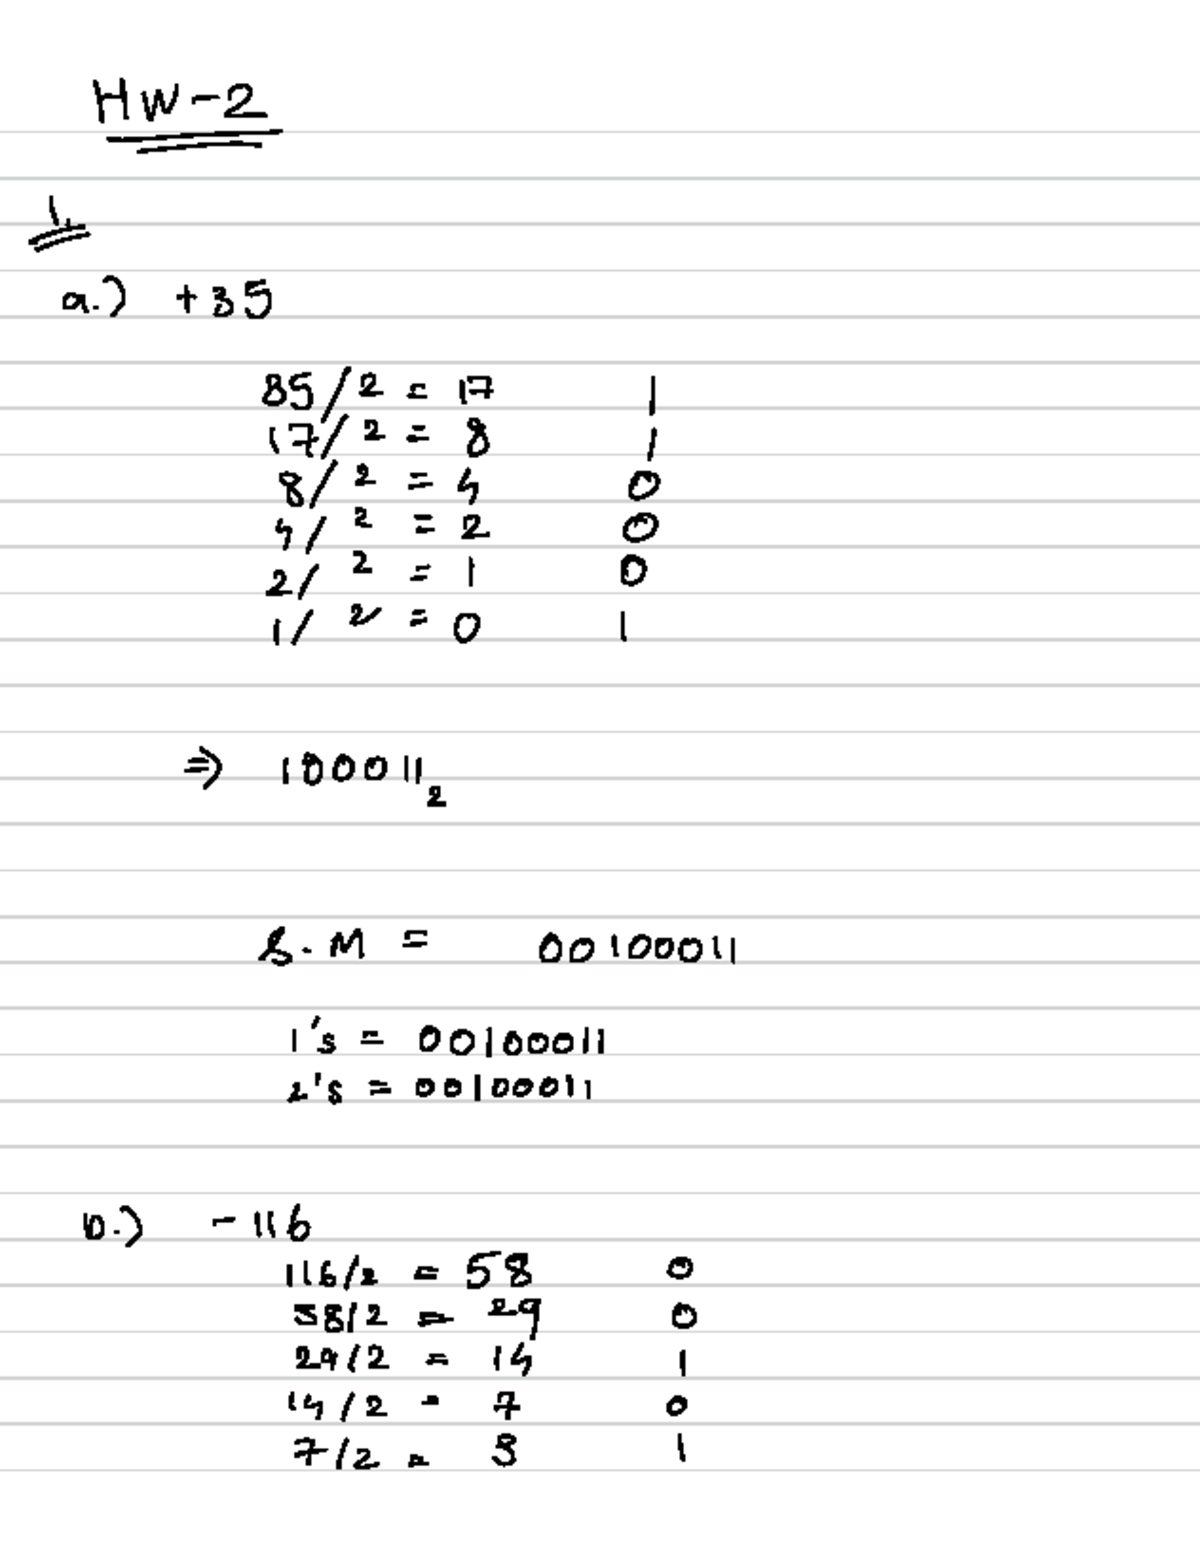 HW-2
1.
a.) +35
35/2 = 17 1
17/2 = 8 1
8/2 = 4 0
4/2 = 2 0
2/2 = 1 0
1/2 = 0 1
⇒ 100011₂
S.M = 00100011
1's = 00100011
2's = 00100011
b.) -116
116/2 = 58 0
58/2 = 29 0
29/2 = 14 1
14/2 = 7 0
7/2 = 3 1